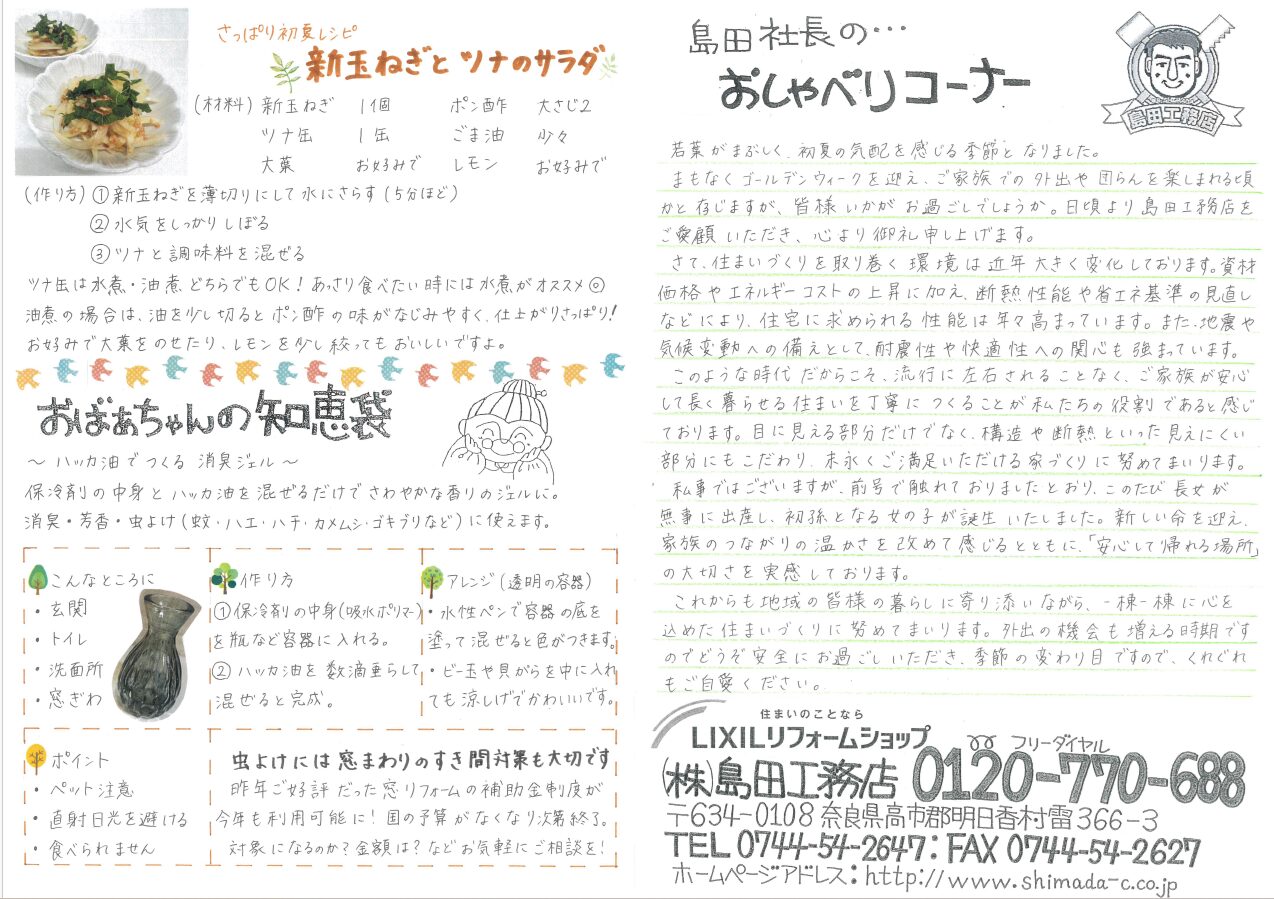 さっぱり初夏レシピ
新玉ねぎとツナのサラダ
(材料) 新玉ねぎ 1個 ポン酢 大さじ2
ツナ缶 1缶 ごま油 少々
大葉 お好みで レモン お好みで
(作り方) ①新玉ねぎを薄切りにして水にさらす(5分ほど)
②水気をしっかりしぼる
③ツナと調味料を混ぜる
ツナ缶は水煮・油煮どちらでもOK!あっさり食べたい時には水煮がオススメ◎
油煮の場合は、油を少し切るとポン酢の味がなじみやすく、仕上がりさっぱり!
お好みで大葉をのせたり、レモンを少し絞ってもおいしいですよ。
おばぁちゃんの知恵袋
～ハッカ油でつくる 消臭ジェル～
保冷剤の中身とハッカ油を混ぜるだけでさわやかな香りのジェルに。
消臭・芳香・虫よけ(蚊・ハエ・ハチ・カメムシ・ゴキブリなど)に使えます。
こんなところに
・玄関
・トイレ
・洗面所
・窓ぎわ
作り方
①保冷剤の中身(吸水ポリマー)
を瓶など容器に入れる。
②ハッカ油を数滴垂らして
混ぜると完成。
アレンジ(透明の容器)
・水性ペンで容器の底を
塗って混ぜると色がつきます。
・ビー玉や貝がらを中に入れ
ても涼しげでかわいいです。
ポイント
・ペット注意
・直射日光を避ける
・食べられません
虫よけには窓まわりのすき間対策も大切です
昨年ご好評だった窓リフォームの補助金制度が
今年も利用可能に!国の予算がなくなり次第終了。
対象になるのか?金額は?などお気軽にご相談を!
島田社長の…
おしゃべりコーナー
島田工務店
若葉がまぶしく、初夏の気配を感じる季節となりました。
まもなくゴールデンウィークを迎え、ご家族での外出や団らんを楽しまれる頃
かと存じますが、皆様いかがお過ごしでしょうか。日頃より島田工務店を
ご愛顧いただき、心より御礼申し上げます。
さて、住まいづくりを取り巻く環境は近年大きく変化しております。資材
価格やエネルギーコストの上昇に加え、断熱性能や省エネ基準の見直し
などにより、住宅に求められる性能は年々高まっています。また、地震や
気候変動への備えとして、耐震性や快適性への関心も強まっています。
このような時代だからこそ、流行に左右されることなく、ご家族が安心
して長く暮らせる住まいを丁寧につくることが私たちの役割であると感じ
ております。目に見える部分だけでなく、構造や断熱といった見えにくい
部分にもこだわり、末永くご満足いただける家づくりに努めてまいります。
私事ではございますが、前号で触れておりましたとおり、このたび長女が
無事に出産し、初孫となる女の子が誕生いたしました。新しい命を迎え、
家族のつながりの温かさを改めて感じるとともに、「安心して帰れる場所」
の大切さを実感しております。
これからも地域の皆様の暮らしに寄り添いながら、一棟一棟に心を
込めた住まいづくりに努めてまいります。外出の機会も増える時期です
のでどうぞ安全にお過ごしいただき、季節の変わり目ですので、くれぐれ
もご自愛ください。
住まいのことなら
LIXILリフォームショップ
フリーダイヤル
(株)島田工務店 0120-770-688
〒634-0108 奈良県高市郡明日香村雷366-3
TEL 0744-54-2647:FAX 0744-54-2627
ホームページアドレス:http://www.shimada-c.co.jp